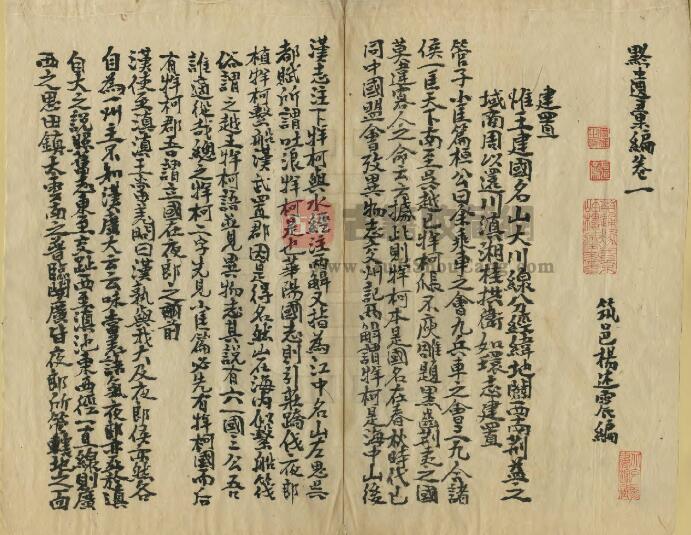 黔邊彙編卷一
筑邑楊述震編
建置
惟王建國名山大川線分經緯地闢西南荊益之
域商周以還川滇湘桂拱衛如環志建置
管子小匡篇桓公曰余乘車之會九兵車之會三九合諸
侯一匡天下南至吳越巴牂柯不庾雕題黑齒荊夷之國
莫違寡人之命云云據此則牂柯本是國名在春秋時代已
同中國盟會攷異物志交州記兩解謂牂柯是海中山後
漢志注下牂柯與水經注兩解又指為江中名山左思吳
都賦所謂吐浪牂柯是也華陽國志則引莊蹻伐夜郎
植牂柯繫船漢武置郡因是得名然山在海內似繫船筏
俗謂之越王牂柯語並見異物志其說有六一國三公吾
誰適從總之牂柯二字先見小匡篇必先有牂柯國而后
有牂柯郡吾謂立國在夜郎之前
漢使至滇滇王嘗羌問曰漢孰與我大及夜郎侯亦然各
自為一州主不知漢廣大云云
自大之說 東至交趾西至滇池東西經一直線則廣
西之思田鎮 雲南之普臨開廣皆夜郎所管轄地之面